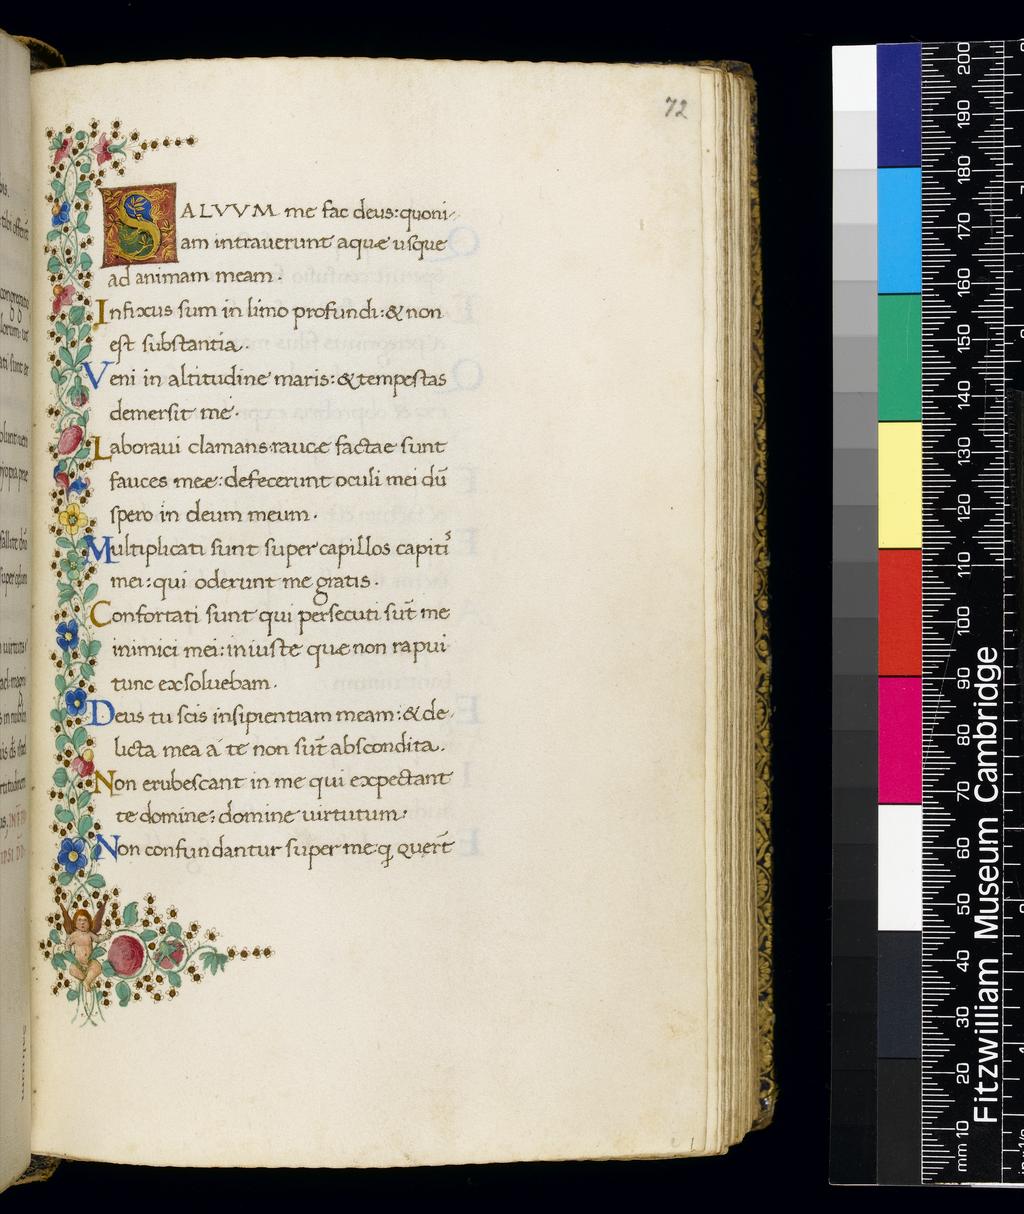 72
SALVVM me fac deus: quoni-
am intrauerunt aquæ usque
ad animam meam.
Infixus sum in limo profundi: & non
est substantia.
Veni in altitudine maris: & tempestas
demersit me.
Laboraui clamans raucæ factae sunt
fauces meę: defecerunt oculi mei dū
spero in deum meum.
Multiplicati sunt super capillos capitis
mei: qui oderunt me gratis.
Confortati sunt qui persecuti sūt me
inimici mei: iniuste quæ non rapui
tunc exsoluebam.
Deus tu scis insipientiam meam: & de-
licta mea a te non sūt abscondita.
Non erubescant in me qui expectant
te domine: domine uirtutum.
Non confundantur super me: q querēt
Fitzwilliam Museum Cambridge
mm 10 20 30 40 50 60 70 80 90 100 110 120 130 140 150 160 170 180 190 200